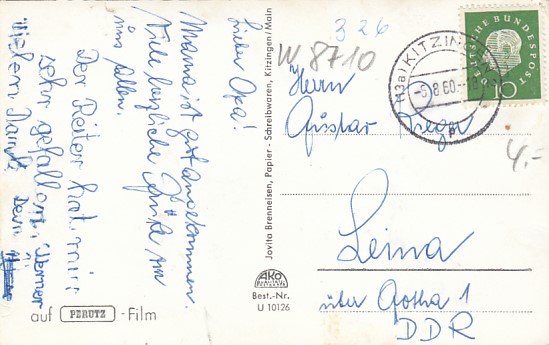 Lieber Opa!
Mama ist gut angekommen.
Viele herzliche Grüße von
uns allen.
Der Reiter hat mir
sehr gefallen,
Vielen Dank Dein
Werner
auf PERUTZ -Film
Jovita Brenneisen, Papier - Schreibwaren, Kitzingen/Main
AKO
Best.-Nr.
U 10126
326
W 8710
DEUTSCHE BUNDESPOST
10
(13a) KITZINGEN
-5.8.60.-18
4,-
Herrn
Gustav
Leina
über Gotha 1
DDR